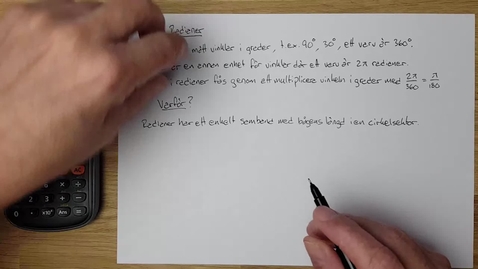 Radianer
mätt vinklar i grader, t.ex. 90°, 30°, ett varv är 360°.
är en annan enhet för vinklar där ett varv är 2π radianer.
i radianer fås genom att multiplicera vinkeln i grader med 2π/360 = π/180
Varför?
Radianer har ett enkelt samband med bågens längd i en cirkelsektor.
0 . x10ˣ Ans